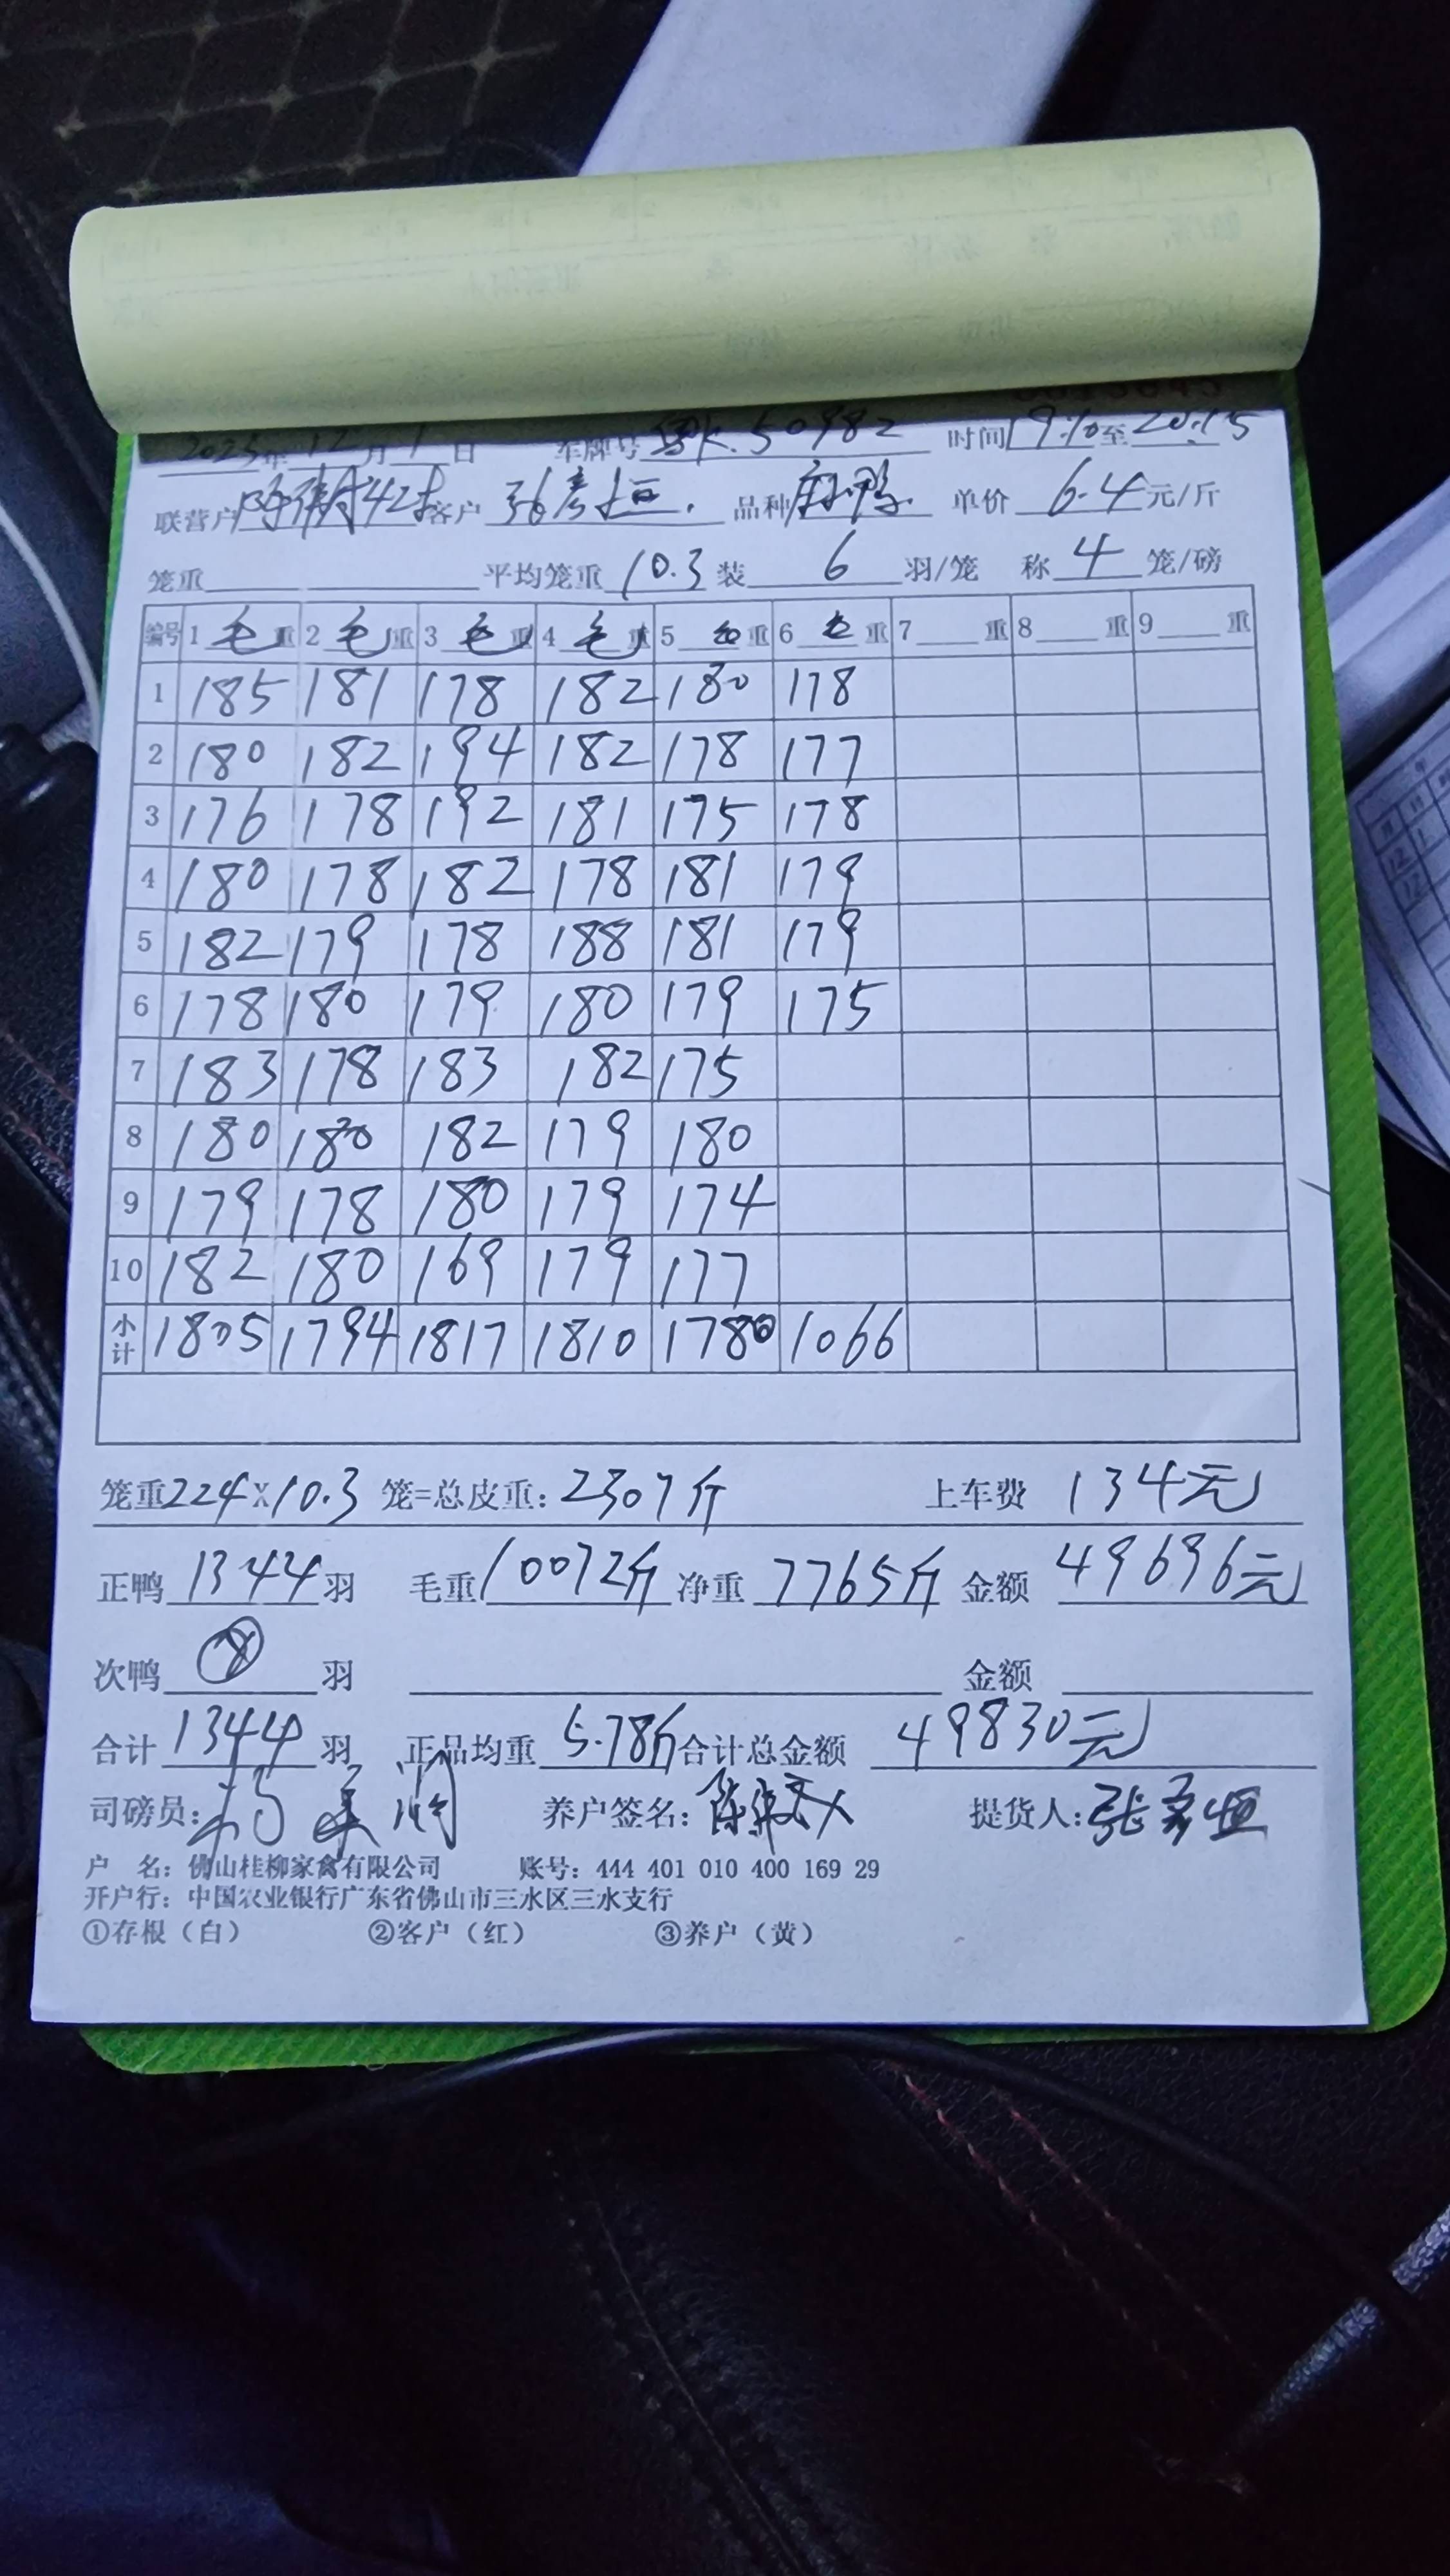 2025年 12月 1日 车牌号 50982 时间 19:10至20:15
联营户 客户 张彦垣. 品种 麻鸭. 单价 6.4 元/斤
笼重 平均笼重 10.3 装 6 羽/笼 称 4 笼/磅
编号 1 毛 重 2 毛 重 3 毛 重 4 毛 重 5 毛 重 6 毛 重 7 重 8 重 9 重
1 185 181 178 182 180 178
2 180 182 194 182 178 177
3 176 178 192 181 175 178
4 180 178 182 178 181 179
5 182 179 178 188 181 179
6 178 180 179 180 179 175
7 183 178 183 182 175
8 180 180 182 179 180
9 179 178 180 179 174
10 182 180 169 179 177
小计 1805 1794 1817 1810 1780 1066
笼重 224 X 10.3 笼=总皮重: 2307斤 上车费 134元
正鸭 1344 羽 毛重 10072斤 净重 7765斤 金额 49696元
次鸭 ⑧ 羽 金额
合计 1344 羽 正品均重 5.78斤 合计总金额 49830元
司磅员: 养户签名: 提货人: 张彦垣
户 名: 佛山桂柳家禽有限公司 账号: 444 401 010 400 169 29
开户行: 中国农业银行广东省佛山市三水区三水支行
①存根（白） ②客户（红） ③养户（黄）